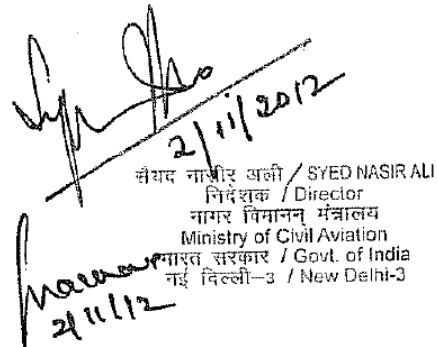 2/11/2012
सैयद नासीर अली / SYED NASIR ALI
निदेशक / Director
नागर विमानन् मंत्रालय
Ministry of Civil Aviation
भारत सरकार / Govt. of India
नई दिल्ली-3 / New Delhi-3
2/11/12